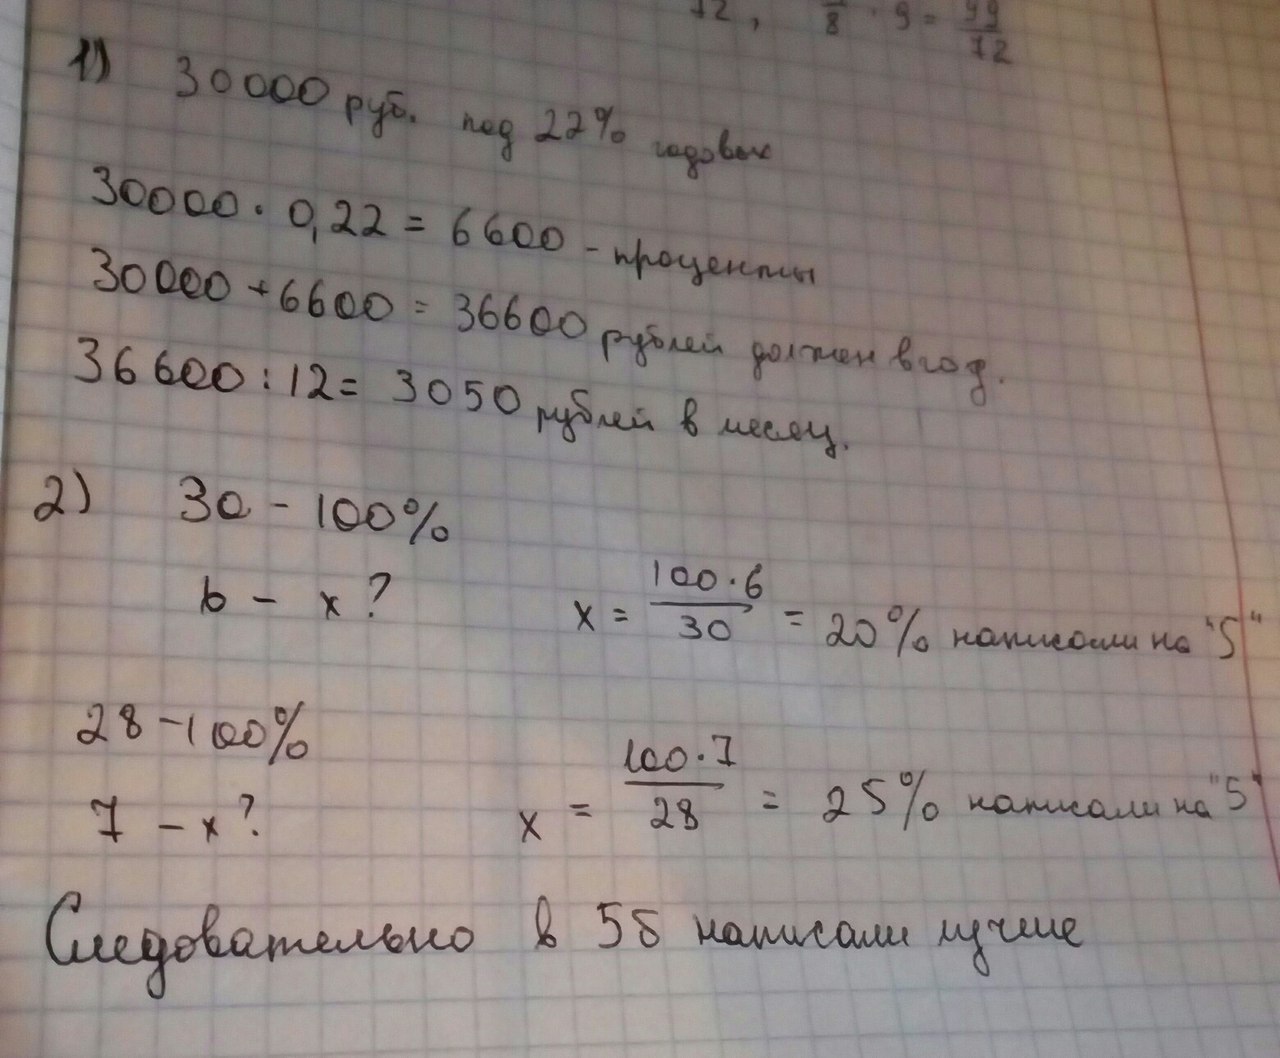 72, 8 · 9 = 99/72
1) 30000 руб. под 22% годовых
30000 · 0,22 = 6600 - проценты
30000 + 6600 = 36600 рублей должен в год.
36600 : 12 = 3050 рублей в месяц.
2) 30 - 100%
6 - x ?
x = 100·6/30 = 20% написали на "5"
28 - 100%
7 - x ?
x = 100·7/28 = 25% написали на "5"
Следовательно в 5б написали лучше